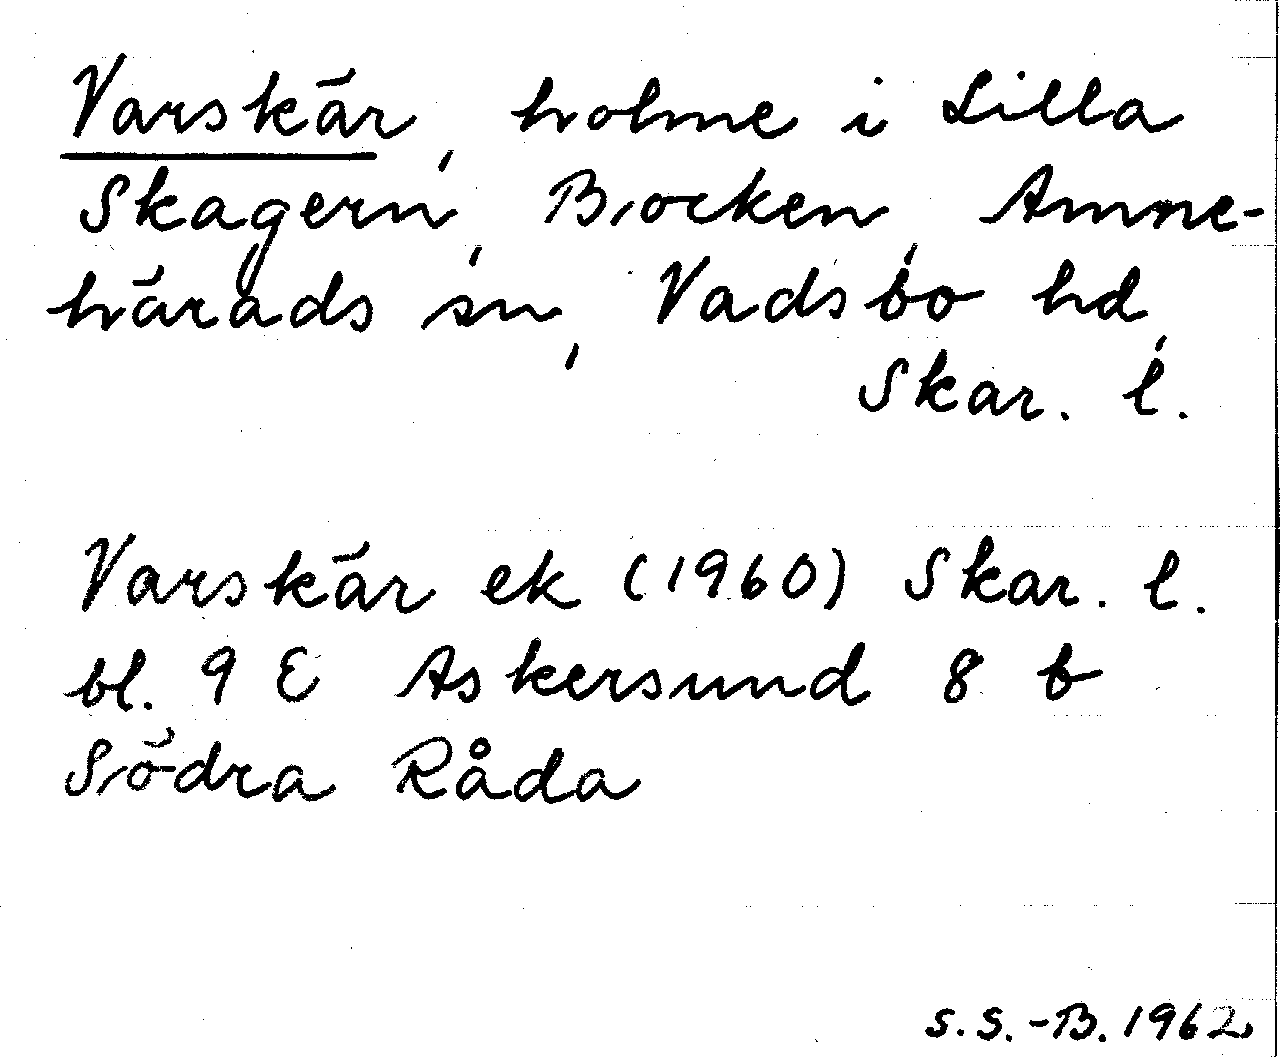 Varskär, holme i Lilla
Skagern, Brocken, Amne-
härads sn, Vadsbo hd,
Skar. l.
Varskär ek (1960) Skar. l.
bl. 9 E Askersund 8 b
Södra Råda
S.S.-B. 1962